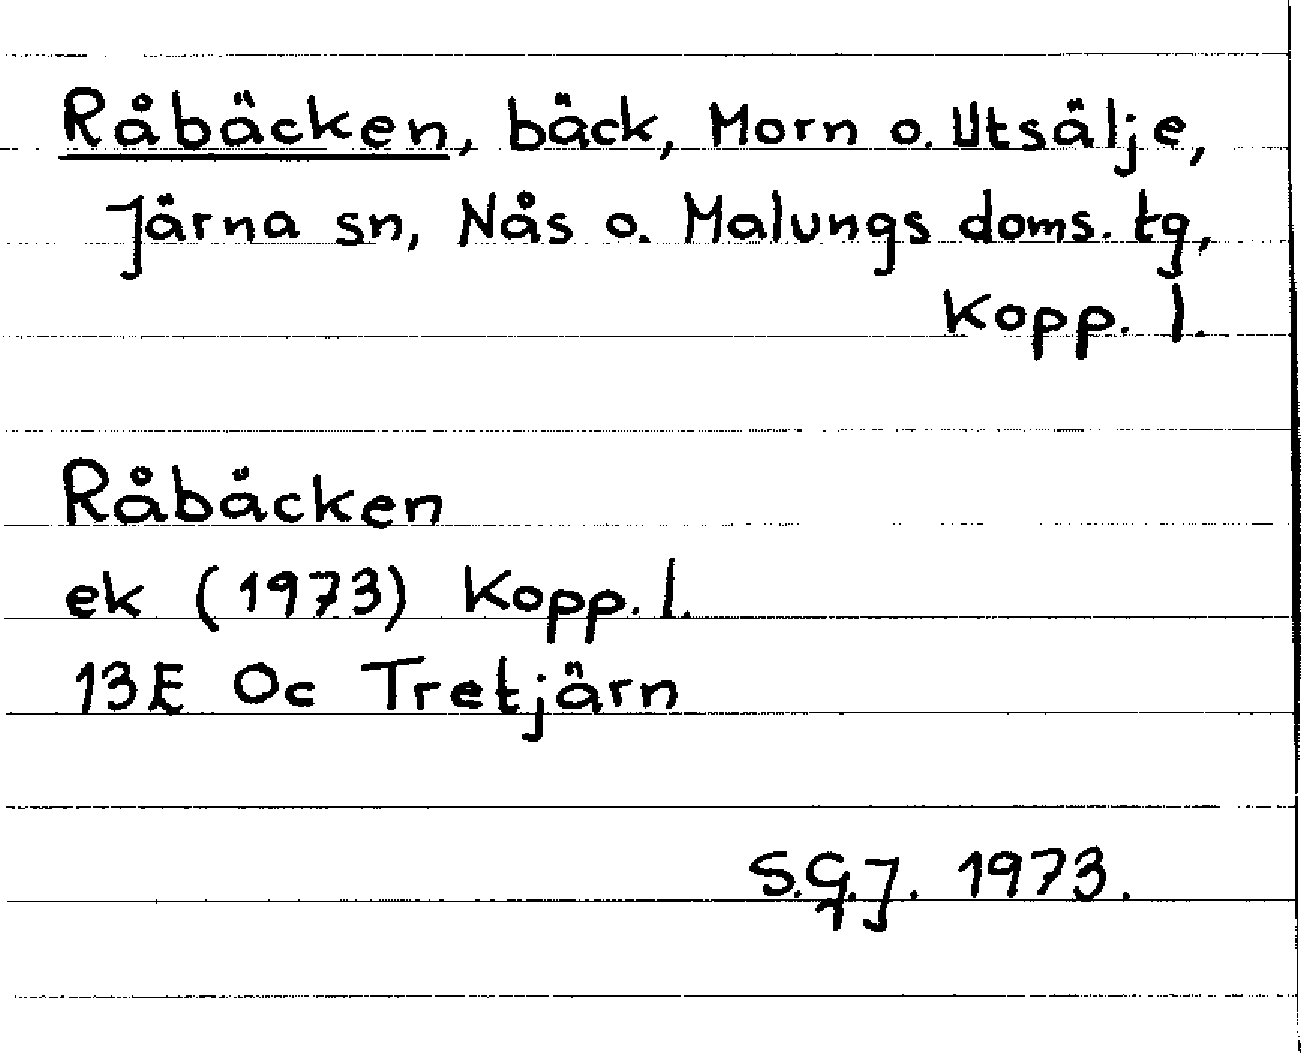 Råbäcken, bäck, Morn o. Utsälje,
Järna sn, Nås o. Malungs doms. tg,
Kopp. l.
Råbäcken
ek (1973) Kopp. l.
13E Oc Tretjärn
S.G.J. 1973.